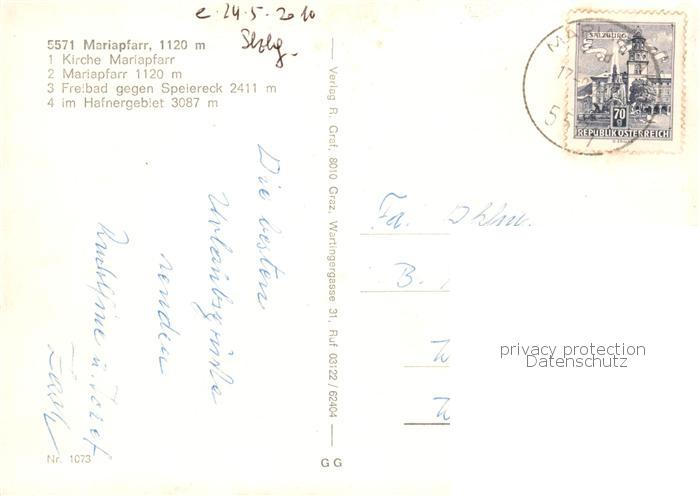 e. 24.5.2010
Sbg.
5571 Mariapfarr, 1120 m
1 Kirche Mariapfarr
2 Mariapfarr 1120 m
3 Freibad gegen Speiereck 2411 m
4 im Hafnergebiet 3087 m
SALZBURG
70
REPUBLIK ÖSTERREICH
MA
17.
55
Verlag R. Graf, 8010 Graz, Wartingergasse 31, Ruf 03122/62404
Die besten
Urlaubsgrüße
senden
Rudolfine u. Josef
Fa.
B.
privacy protection
Datenschutz
Nr. 1073
G G